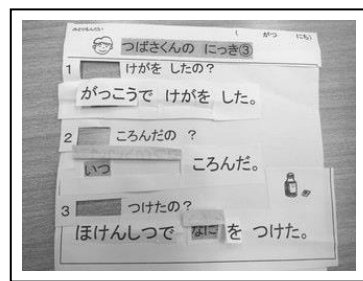 つばさくんの にっき③
1 けがを したの?
がっこうで けがを した。
2 ころんだの ?
いつ ころんだ。
3 つけたの?
ほけんしつで なに を つけた。